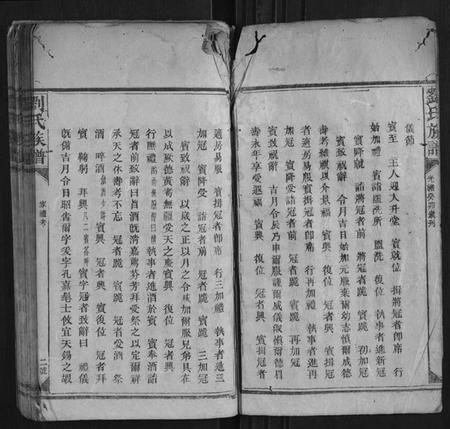 劉氏族譜
儀節
賓至 主人迎入升堂 賓就位 揖將冠者卽席 行
始加禮 賓詣盥洗所 盥洗 復位 執事者進新冠
賓降就 詣將冠者前 將冠者跪 賓跪 初加冠
賓致祝辭 令月吉日始加元服棄爾幼志順爾成德
壽考維祺以介景福 賓興 復位 冠者興 賓揖冠者
適房易服 賓揖冠者卽席 行再加禮 執事者進再
加冠 賓降受 詣冠者前 冠者跪 賓跪 再加冠
賓致祝辭 吉月令辰乃申爾服謹爾威儀淑愼爾德眉
壽永年享受遐福 賓興 復位 冠者興 賓揖冠者
適房易服 賓揖冠者卽席 行三加禮 執事者進三
加冠 賓降受 詣冠者前 冠者跪 賓跪 三加冠
賓致祝辭 以歲之正以月之令咸加爾服兄弟具在
以成厥德黃耇無疆受天之慶賓興 復位 冠者興
行醮禮 執事者進酒於賓 賓奉酒詣
冠者前致醮辭曰旨酒旣淸嘉薦芬芳拜受祭之以定爾祥
承天之休壽考不忘 冠者跪 賓跪 冠者受酒 祭
酒 啐酒 賓興 冠者興 賓復位 冠者拜
賓 鞠躬 拜興 賓字冠者致辭曰 禮儀
旣備吉月令日昭吿爾字爰字孔嘉髦士攸宜天錫之嘏
劉氏族譜
家禮考